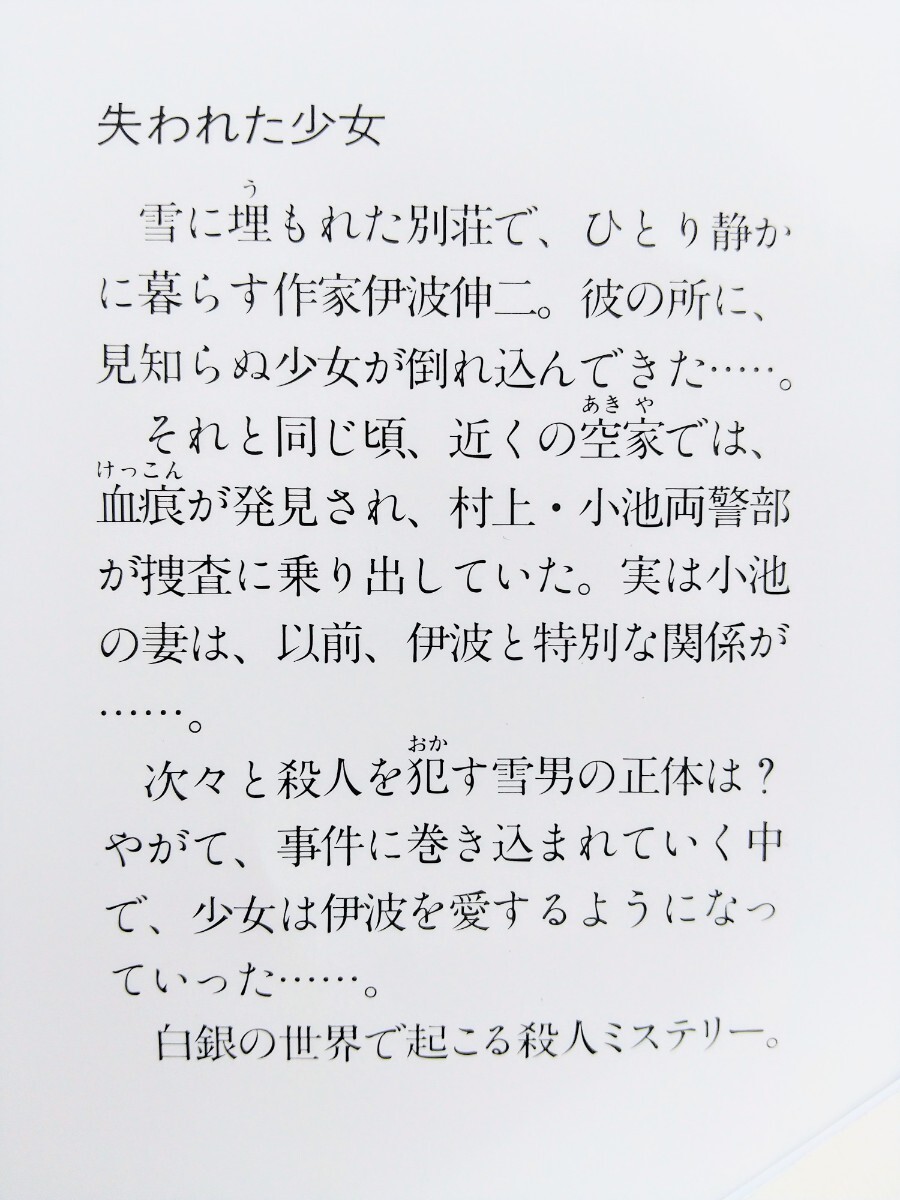 失われた少女
う
雪に埋もれた別荘で、ひとり静か
に暮らす作家伊波伸二。彼の所に、
見知らぬ少女が倒れ込んできた……。
あき や
それと同じ頃、近くの空家では、
けっこん
血痕が発見され、村上・小池両警部
が捜査に乗り出していた。実は小池
の妻は、以前、伊波と特別な関係が
……。
おか
次々と殺人を犯す雪男の正体は？
やがて、事件に巻き込まれていく中
で、少女は伊波を愛するようになっ
ていった……。
白銀の世界で起こる殺人ミステリー。